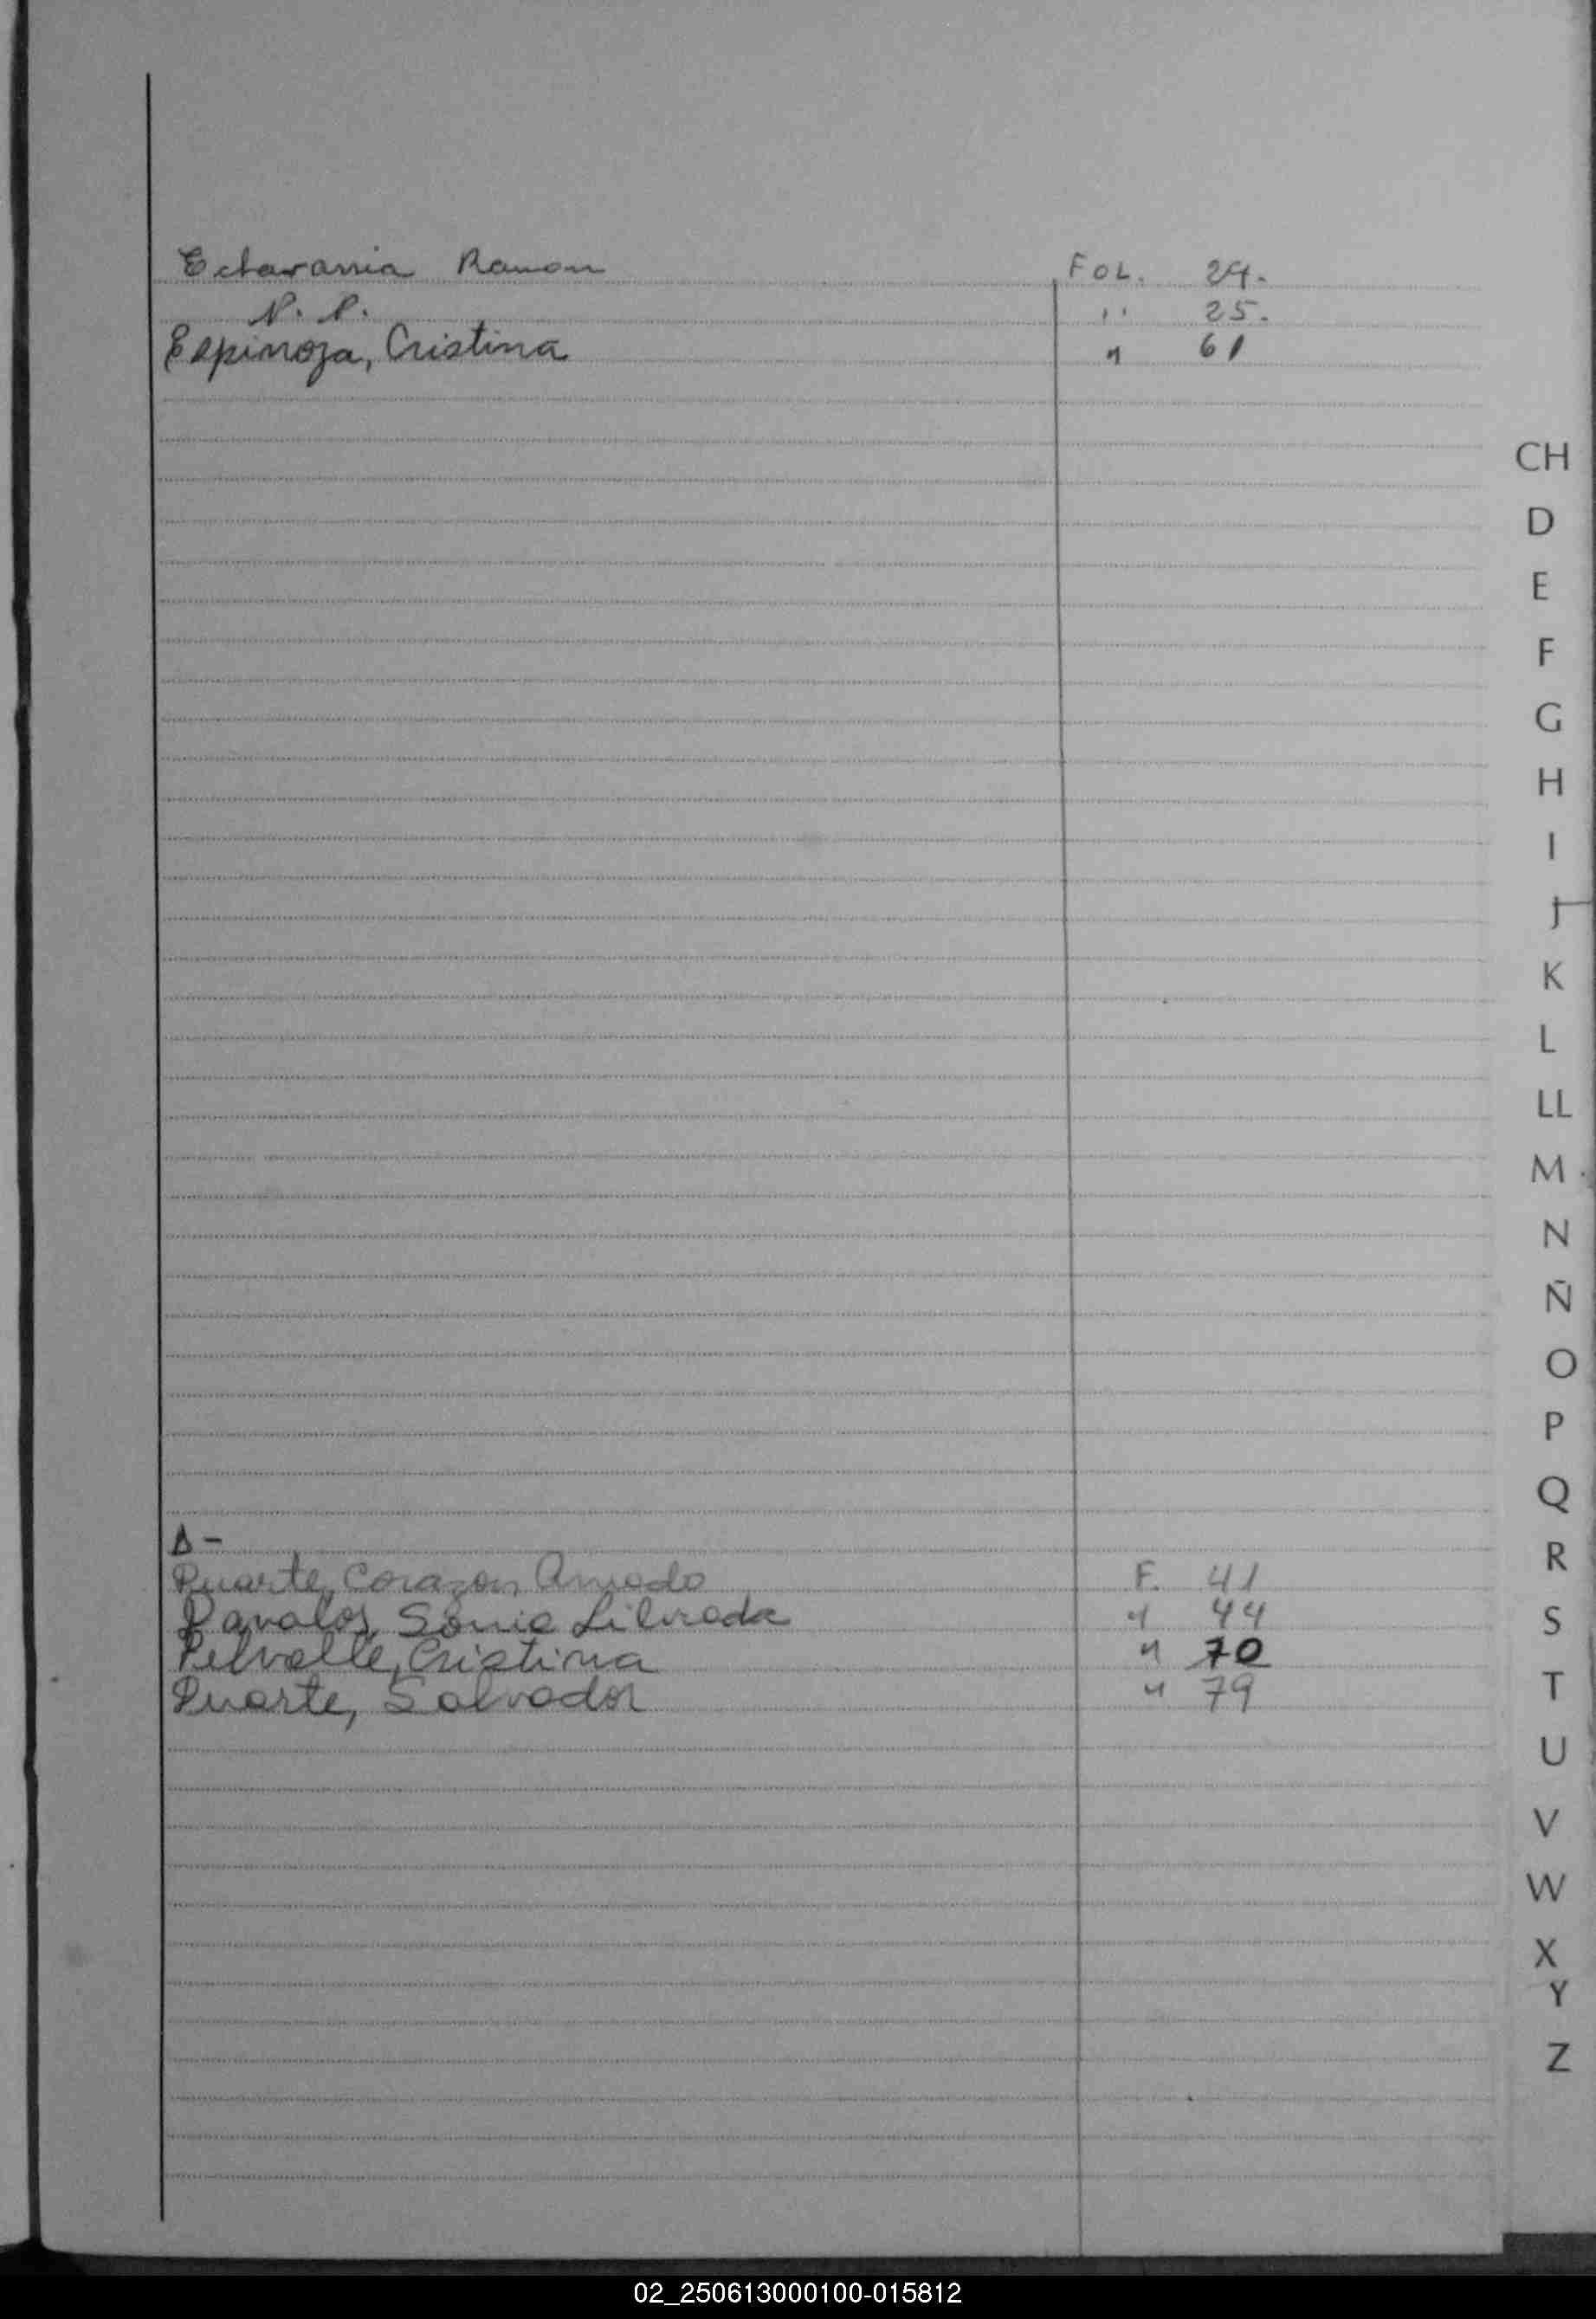 Echavarria Ramon FOL. 24.
N. P. '' 25.
Espinoza, Cristina " 61
D -
Duarte, Corazon Amado F. 41
Davalos, Sonia Librada " 44
Delvalle, Cristina " 70
Duarte, Salvador " 79
CH
D
E
F
G
H
I
J
K
L
LL
M
N
Ñ
O
P
Q
R
S
T
U
V
W
X
Y
Z
02_250613000100-015812